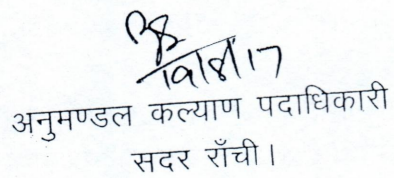 अनुमण्डल कल्याण पदाधिकारी
सदर राँची।